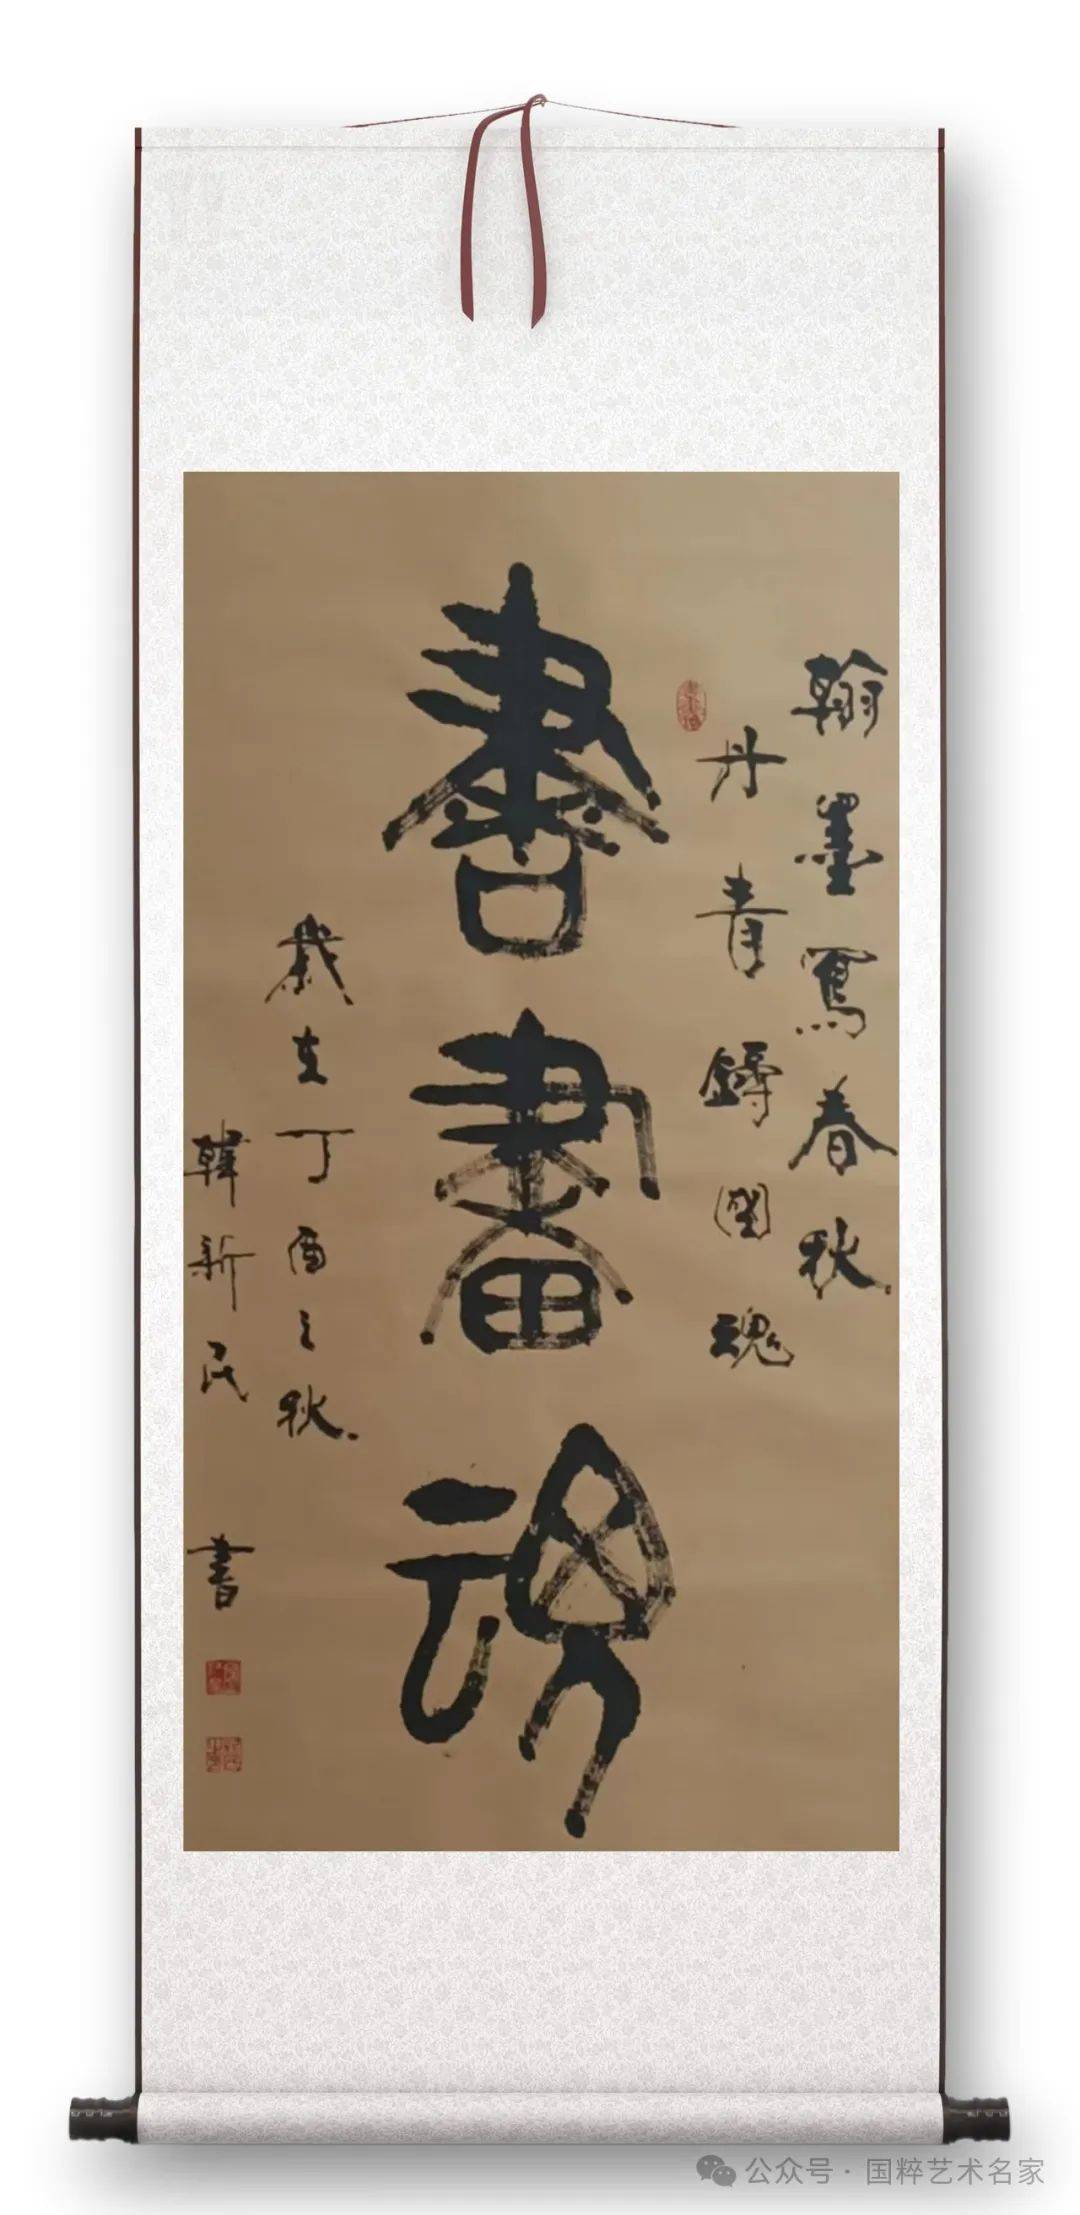 翰墨寫春秋
丹青鑄國魂
書畫魂
歲在丁酉之秋
韓新民 書
公众号·国粹艺术名家